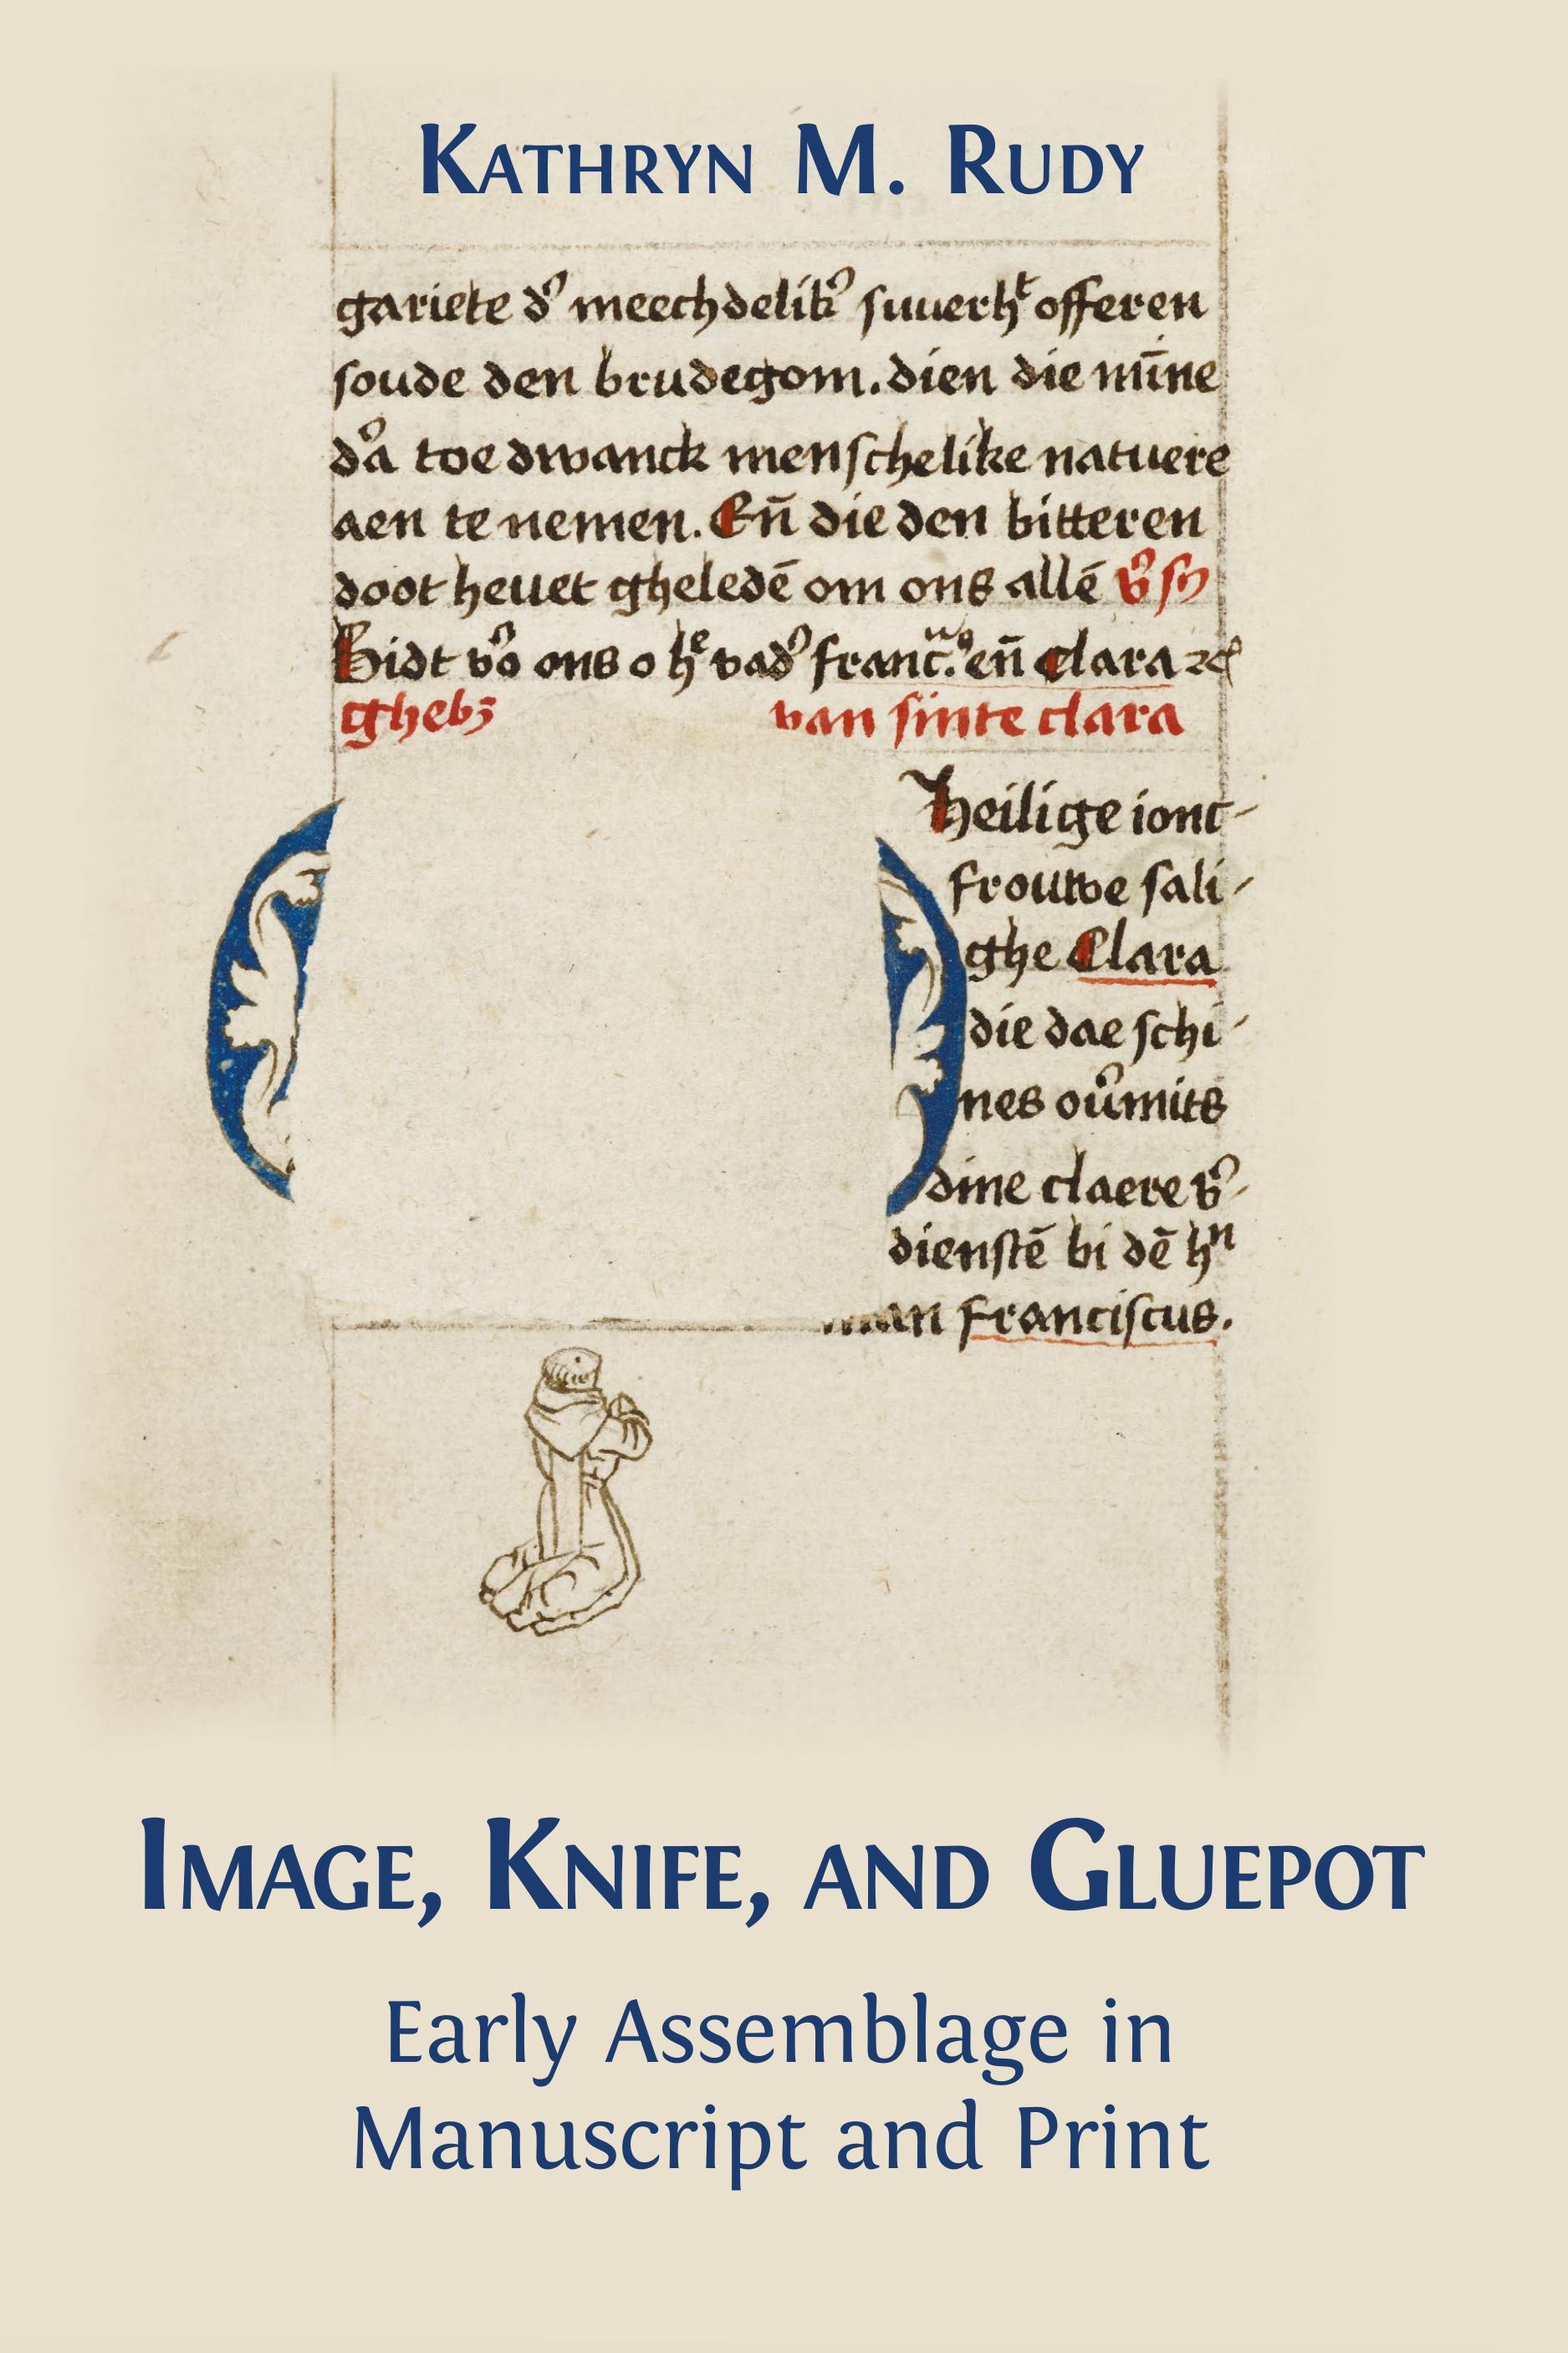 KATHRYN M. RUDY
gariete d' meechdelik' suuerh^t offeren
soude den brudegom. dien die mīne
d'a toe dwanck menschelike natuere
aen te nemen. Eñ die den bitteren
doot heuet gheledē om ons allē
Bidt vo' ons o h^e vad' franc. eñ clara
gheb₃ van sinte clara
heilige ionc-
frouwe sali-
ghe Clara
die dae schi-
nes ou'mits
dine claere v'-
dienstē bi dē h^n
an franciscus.
IMAGE, KNIFE, AND GLUEPOT
Early Assemblage in
Manuscript and Print